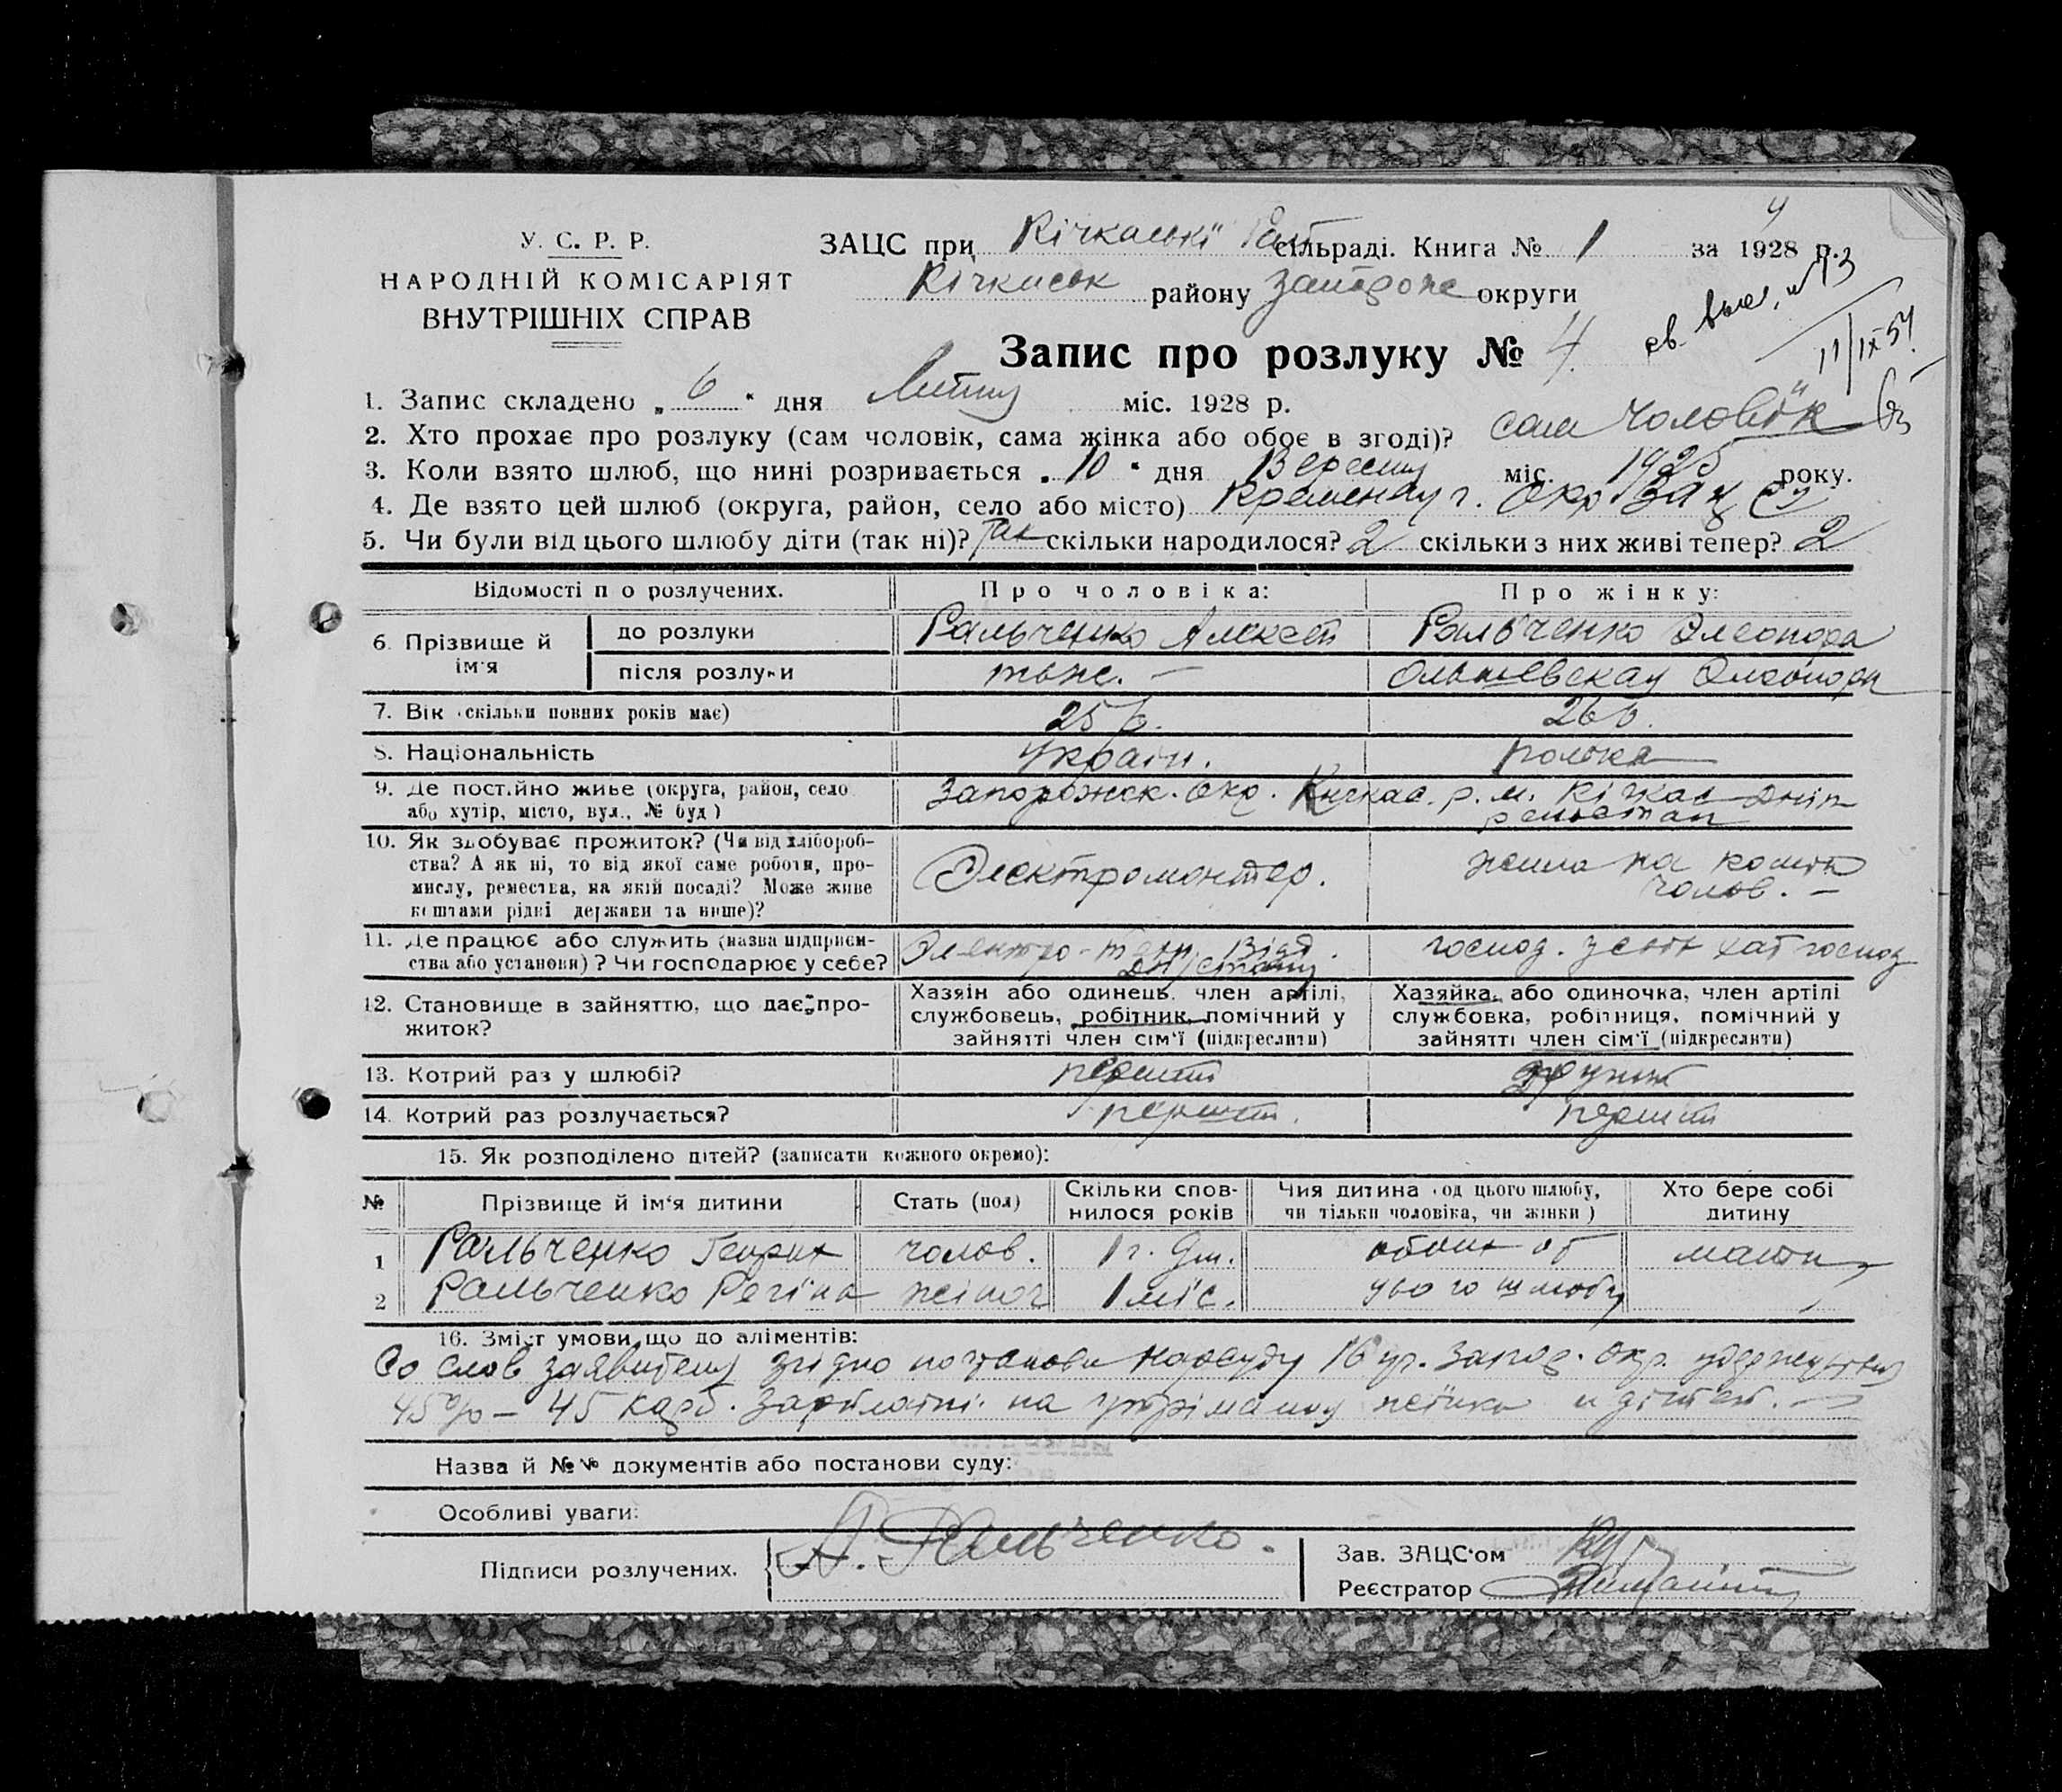 У. С. Р. Р.
НАРОДНІЙ КОМІСАРІЯТ
ВНУТРІШНІХ СПРАВ
4
ЗАЦС при Кічкаські сільраді. Книга № 1 за 1928 р.
Кічкаськ району Запороже округи
11/IX-54
Запис про розлуку № 4.
1. Запис складено „ 6 " дня Лютня міс. 1928 р.
2. Хто прохає про розлуку (сам чоловік, сама жінка або обоє в згоді)? сам чоловік
3. Коли взято шлюб, що нині розривається „ 10 " дня Вересня міс. 1925 року.
4. Де взято цей шлюб (округа, район, село або місто) Кременчуг. Окр Зацсі
5. Чи були від цього шлюбу діти (так ні)? так скільки народилося? 2 скільки з них живі тепер? 2
Відомості по розлучених. Про чоловіка: Про жінку:
6. Прізвище й ім'я до розлуки Ральченко Алексей Ральченко Элеонора
після розлуки тоже. — Ольшевская Элеонора
7. Вік (скільки повних років має) 25 р. 26 р.
8. Національність Україн. полька
9. Де постійно живе (округа, район, село або хутір, місто, вул., № буд) Запорожск. Окр. Кичкас. р. м. Кічкас Дніп
рельстан
10. Як здобуває прожиток? (Чи від хліборобства? А як ні, то від якої саме роботи, промислу, ремества, на якій посаді? Може живе коштами рідні держави та инше)? Электромонтер. жила на кошти
чолов. —
11. Де працює або служить (назва підприємства або установи)? Чи господарює у себе? Электро-техн. Відд. господ.
12. Становище в зайняттю, що дає прожиток? Хазяін або одинець, член артілі, службовець, робітник, помічний у зайнятті член сім'ї (підкреслити) Хазяйка, або одиночка, член артілі службовка, робітниця, помічний у зайнятті член сім'ї (підкреслити)
13. Котрий раз у шлюбі? перший другий
14. Котрий раз розлучається? перший. перший
15. Як розподілено дітей? (записати кожного окремо):
№ Прізвище й ім'я дитини Стать (пол) Скільки сповнилося років Чия дитина (од цього шлюбу, чи тільки чоловіка, чи жінки) Хто бере собі дитину
1 Ральченко Генрих чолов. 1 г. 9 м. обоих од мати
2 Ральченко Регіна жіноч 1 міс. цього шлюбу
16. Зміст умови що до аліментів:
Со слов заявителя згідно постанови нарсуду 16 уч. Запор. окр.
45% - 45 карб. Зарплатні на утрімання жінки и дітей. —
Назва й №№ документів або постанови суду:
Особливі уваги:
Підписи розлучених. А. Ральченко. Зав. ЗАЦС'ом
Реєстратор